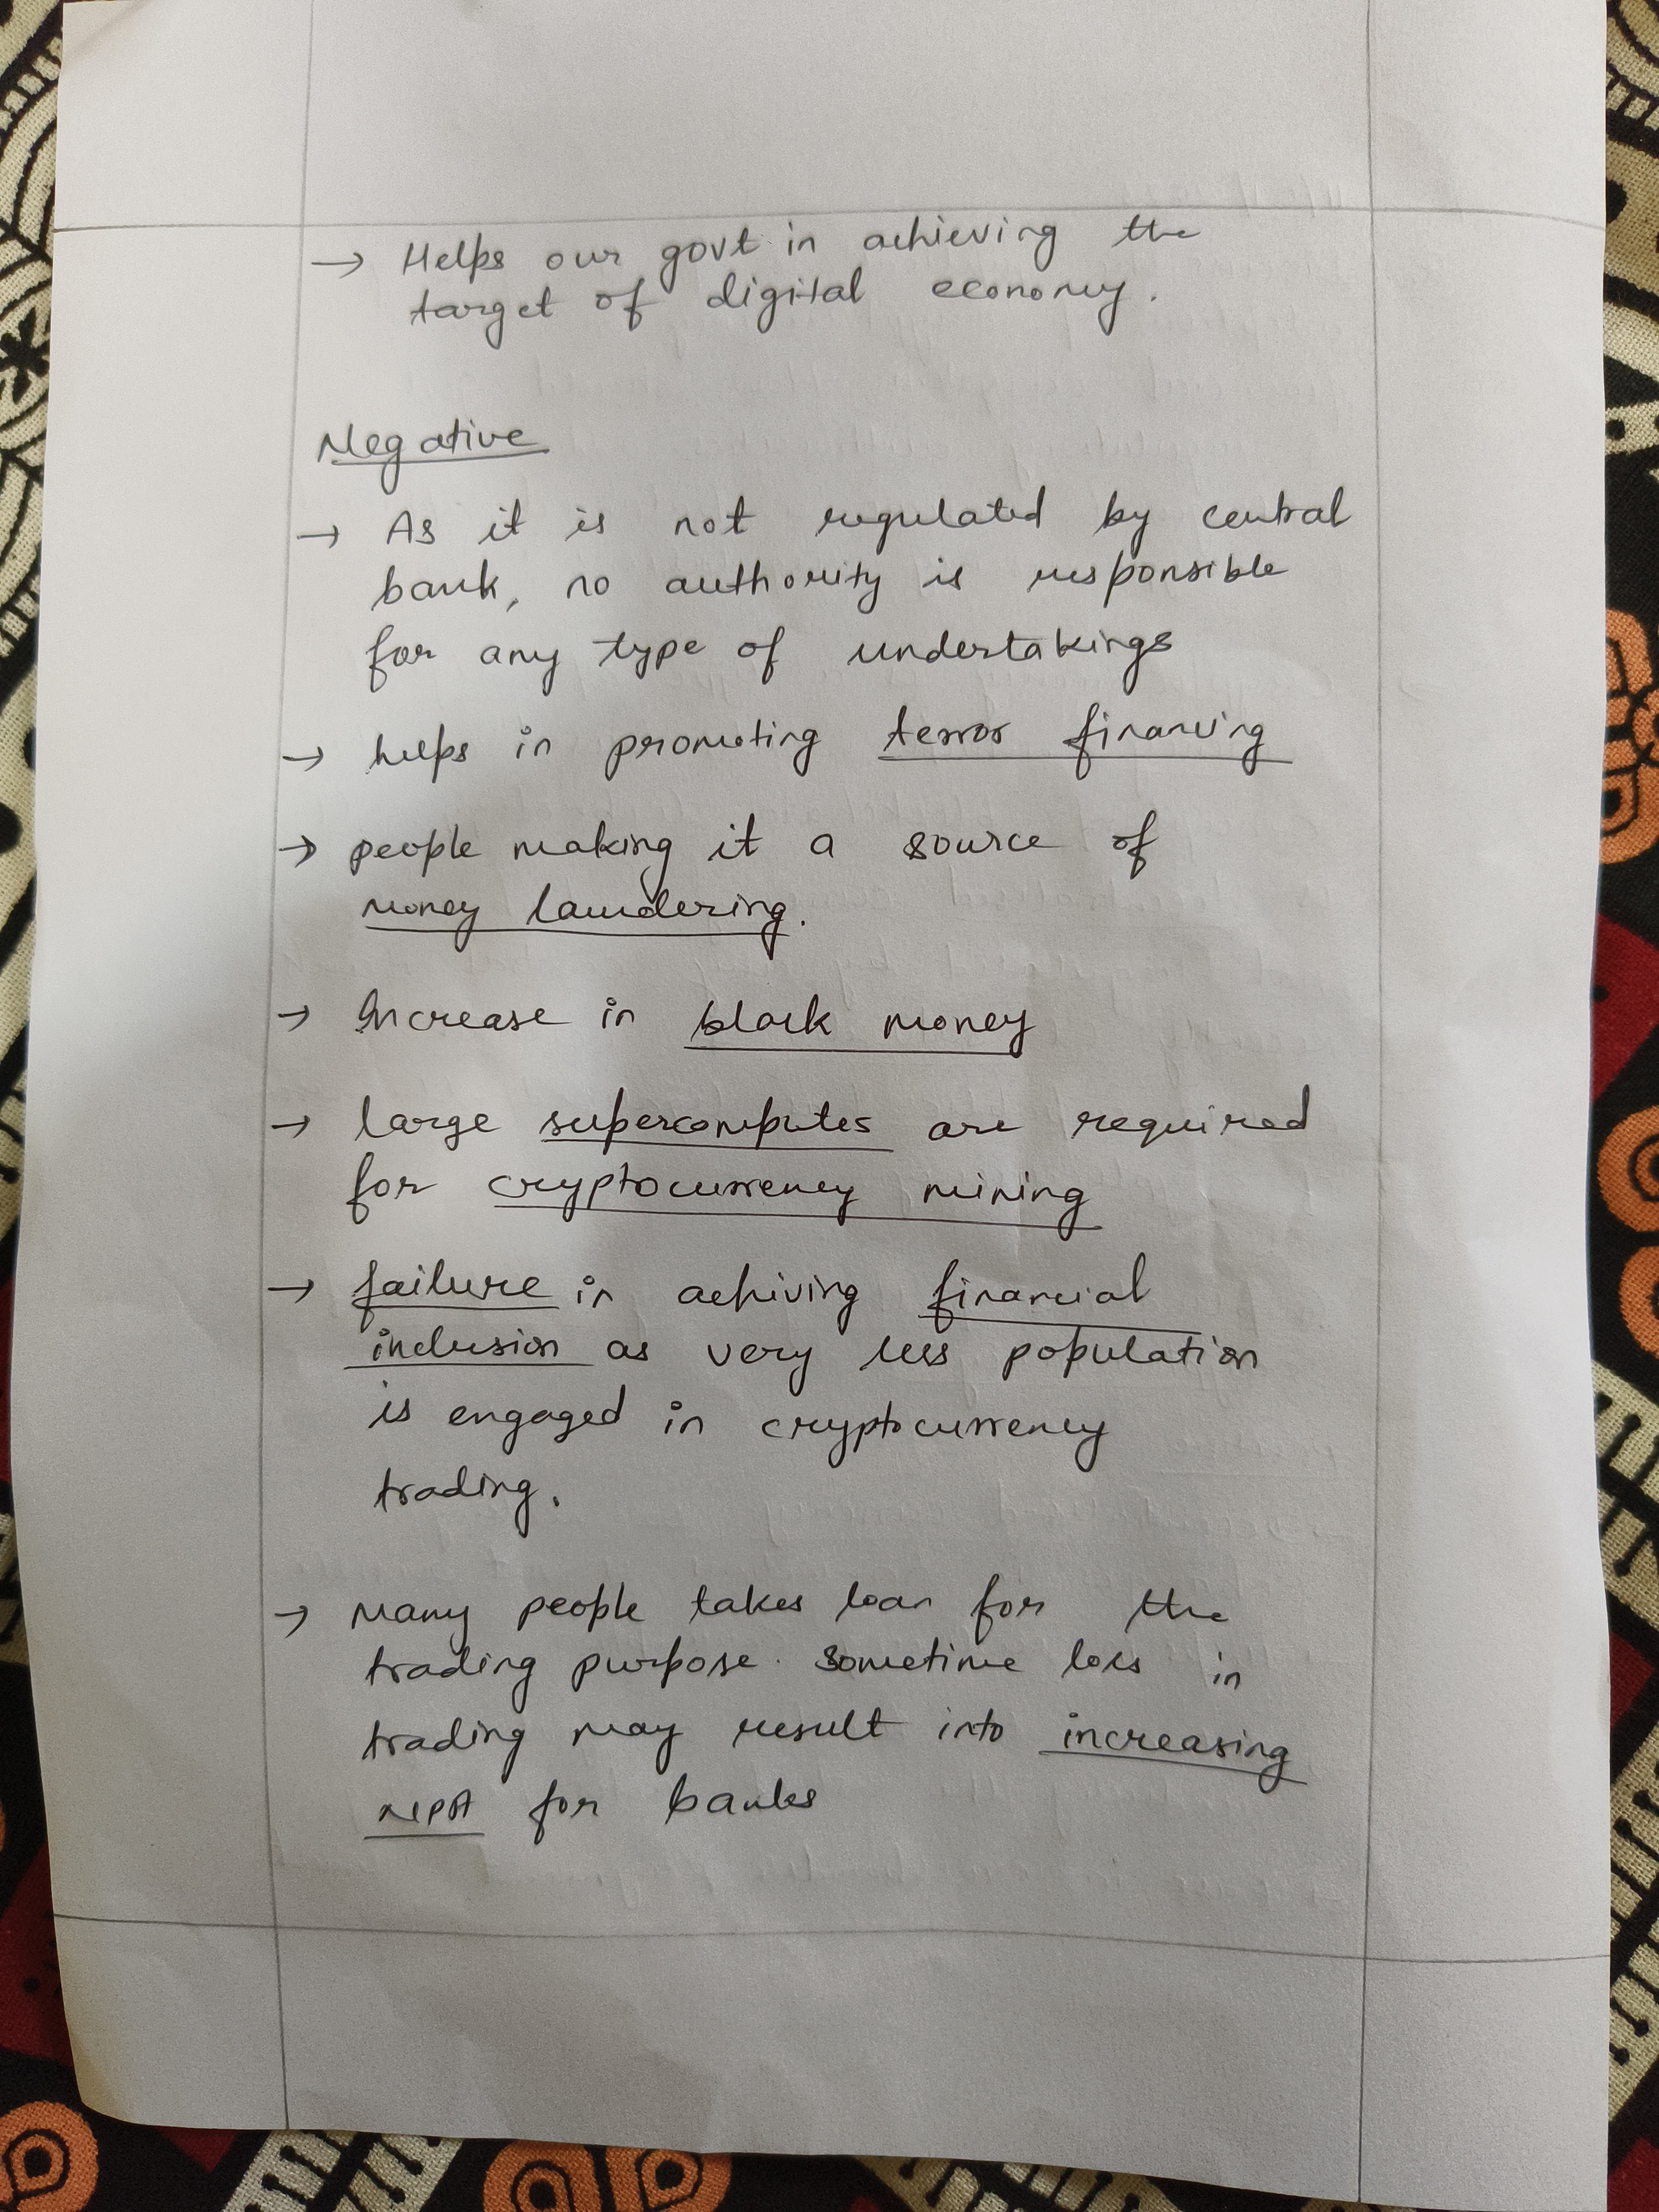 → Helps our govt in achieving the
target of digital economy.
Negative
→ As it is not regulated by central
bank, no authority is responsible
for any type of undertakings
→ helps in promoting terror financing
→ people making it a source of
money laundering.
→ Increase in black money
→ large supercomputes are required
for cryptocurrency mining
→ failure in achiving financial
inclusion as very less population
is engaged in cryptocurrency
trading.
→ Many people takes loan for the
trading purpose. Sometime loss in
trading may result into increasing
NPA for banks